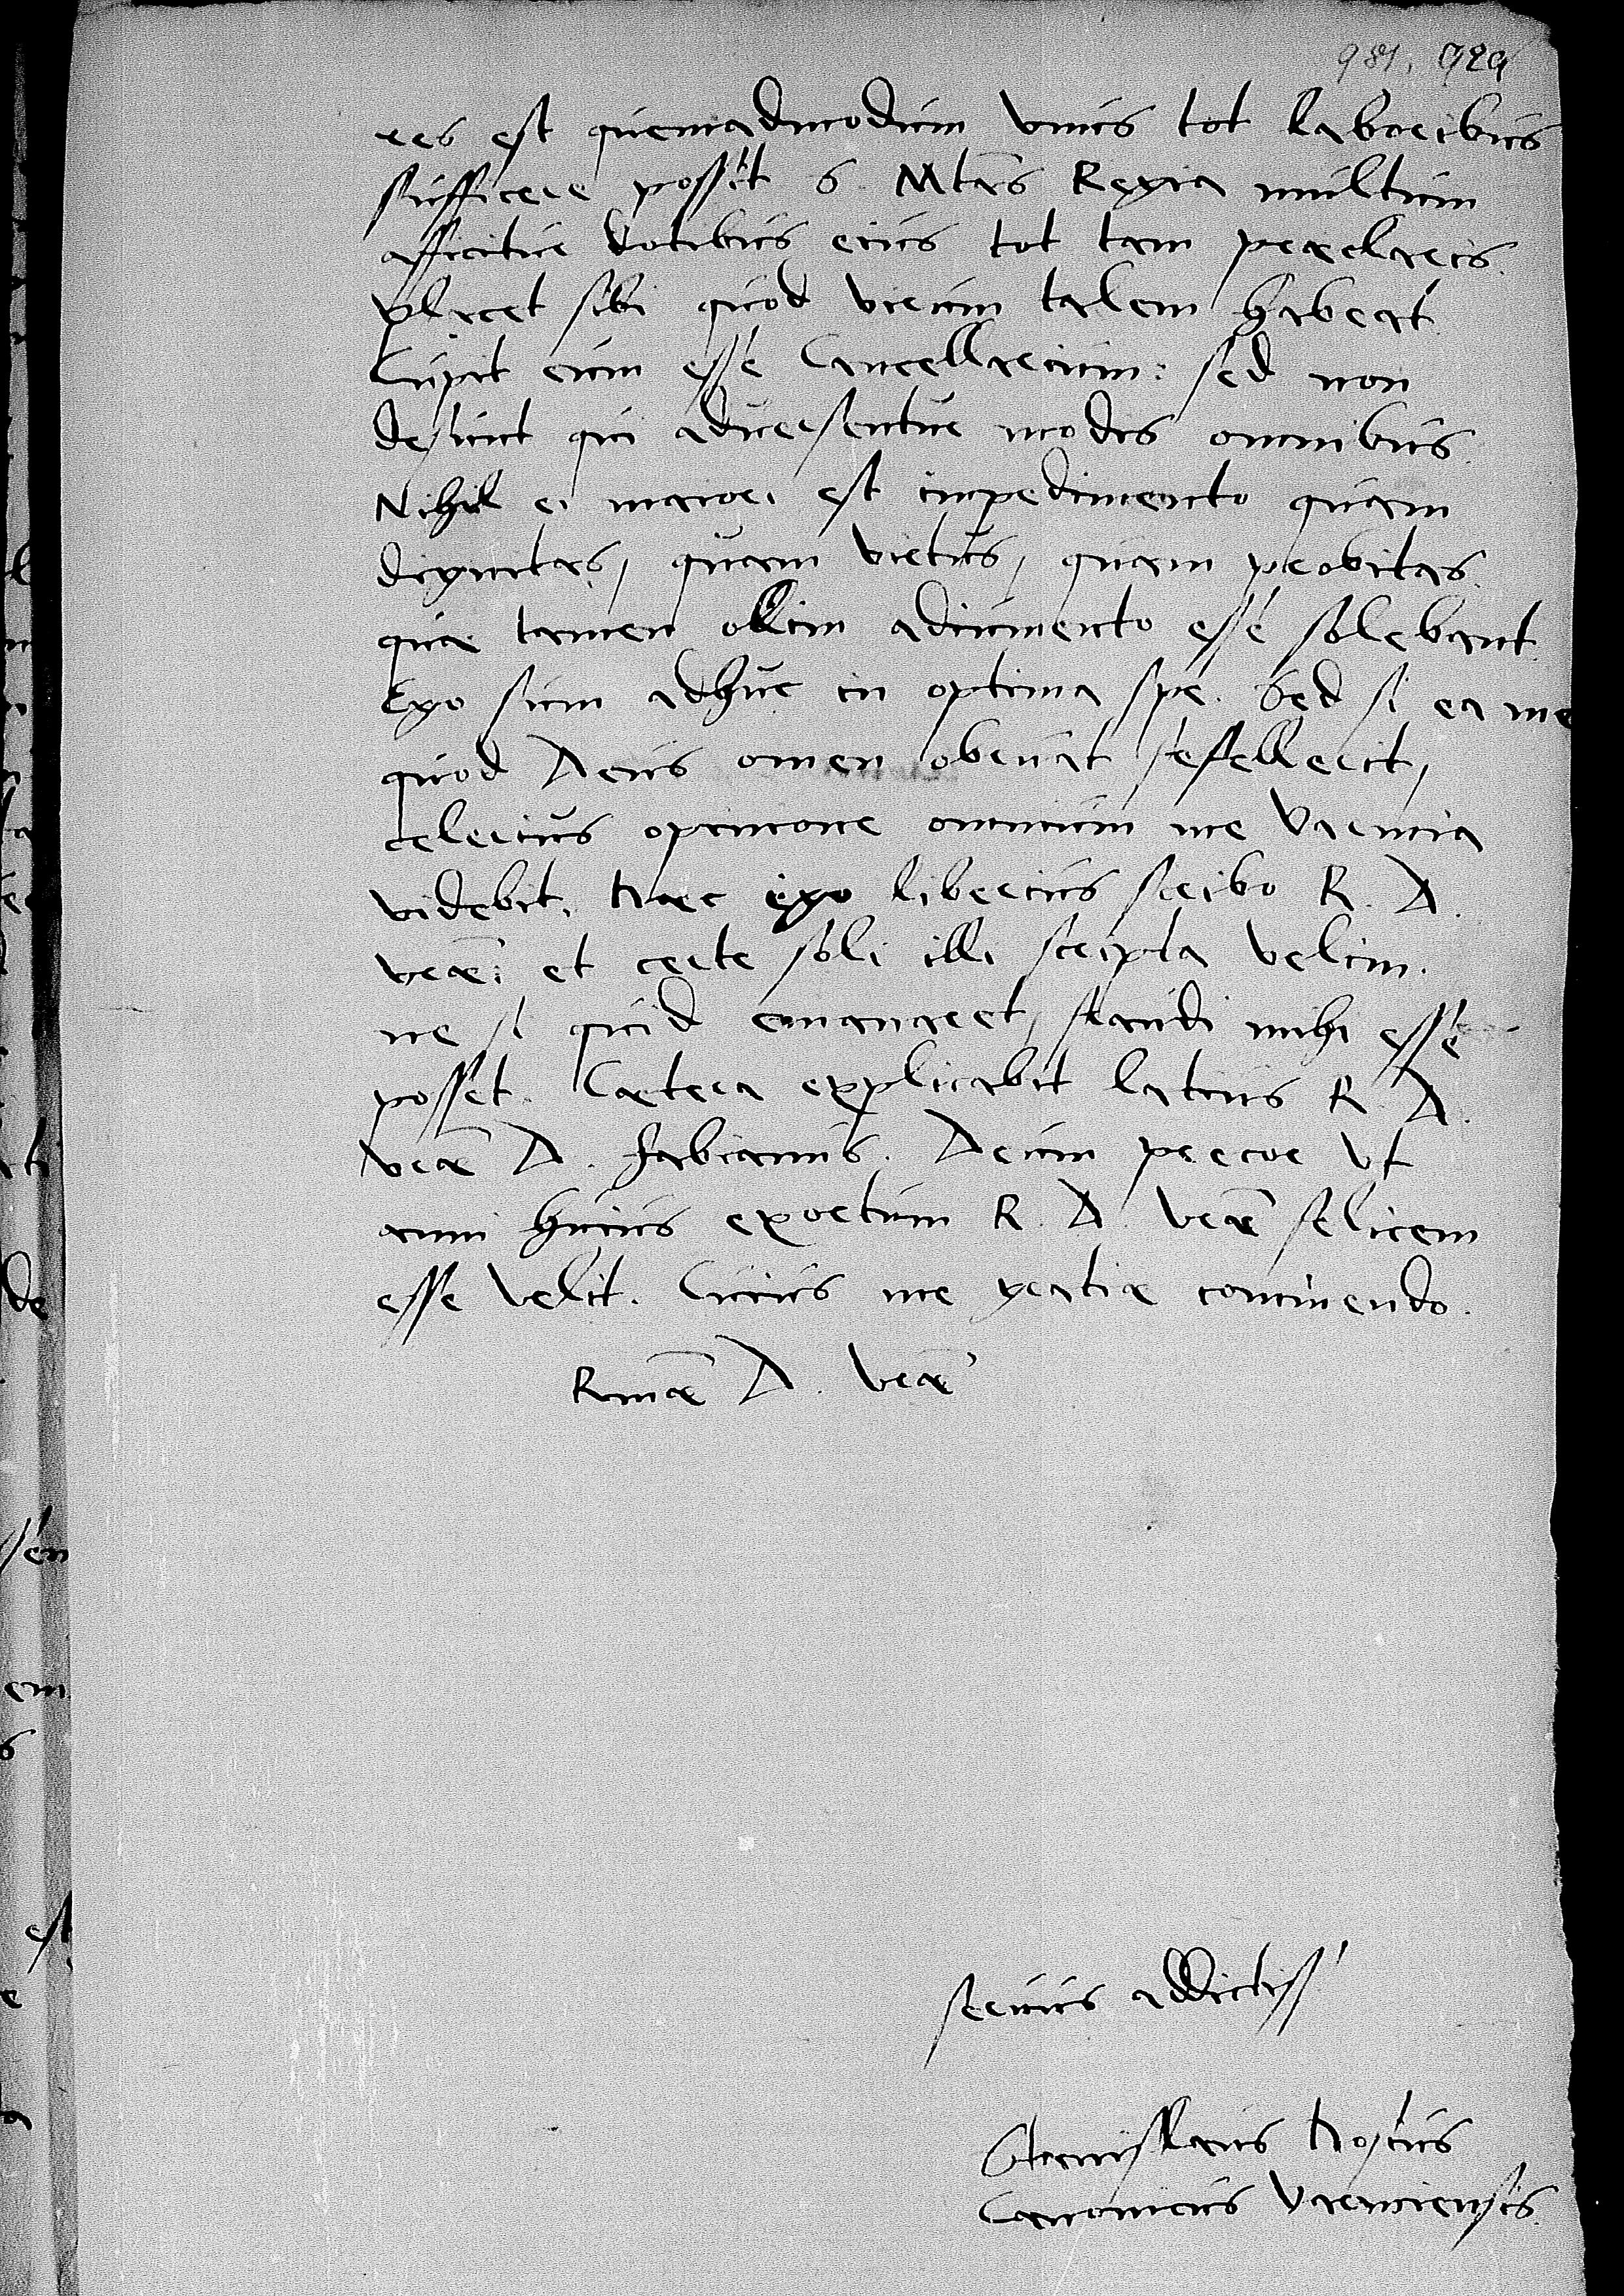 981. 929
res est quemadmodum vnus tot laboribus
sufficere possit S. Mtas Regia multum
afficitur dotibus eius tot tam praeclaris.
placet sibi quod virum talem habeat.
Cupit eum esse Cancellarium: sed non
desunt qui aduersentur modis omnibus.
Nihil ei maiori est impedimento quam
dignitas, quam virtus, quam probitas.
quae tamen olim adiumento esse solebant.
Ego sum adhuc in optima spe. Sed si ea me
quod Deus omen obruat fefellerit,
celerius opinione omnium me Varmia
videbit. Haec ego liberius scribo R. D.
vrae: et certe soli illi scripta velim.
ne si quid emanaret, fraudi mihi esse
posset. Caetera explicabit latius R. D.
vrae D. Fabianus. Deum precor vt
anni huius exortum R. D. vrae felicem
esse velit. Cuius me gratiae commendo.
Rmae D. vrae
seruus addictiss
Stanislaus Hosius
Canonicus Varmiensis.